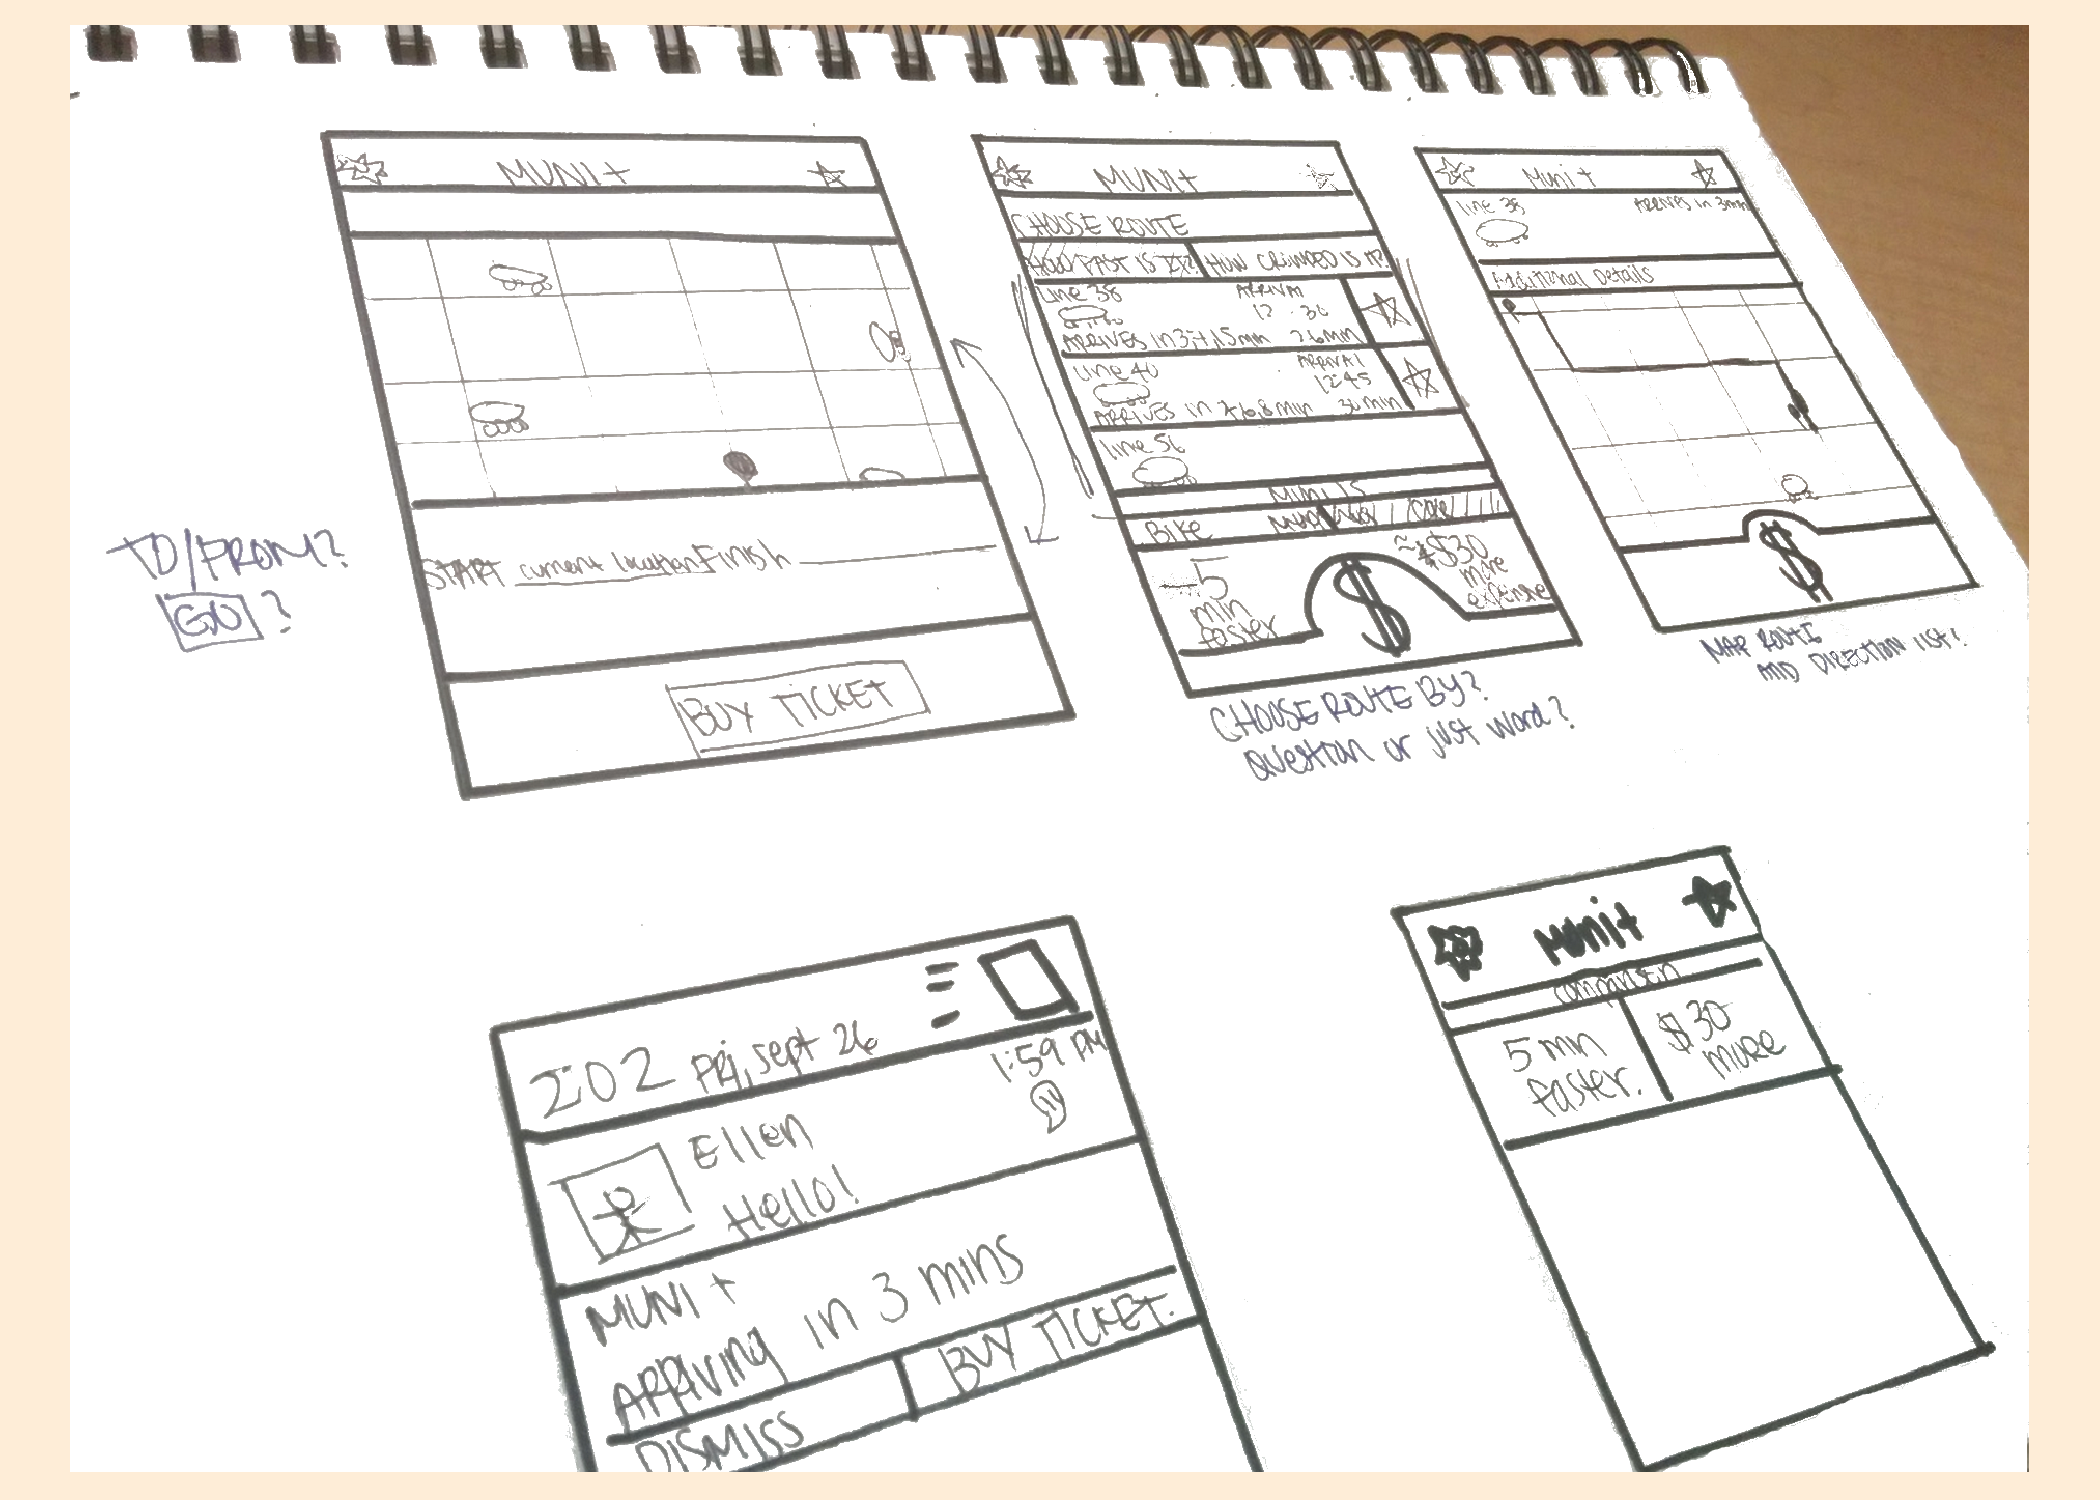 MUNI+
START current location Finish
BUY TICKET
TO/FROM?
GO ?
MUNI+
CHOOSE ROUTE
HOW FAST IS IT? HOW CROWDED IS IT?
Line 38 ARRIVAL
12:30
ARRIVES in 3, 7, 15 min 26 min
Line 40 ARRIVAL
12:45
ARRIVES in 2, 6, 8 min 30 min
line 56
Bike
5 min faster
~ $30 more expensive
$
CHOOSE ROUTE BY?
question or just word?
Muni+
line 38 ARRIVES in 3min
Additional Details
$
MAP ROUTE
AND DIRECTION LIST!
2:02 Fri, Sept 26
Ellen 1:59 PM
Hello!
MUNI+
ARRIVING in 3 mins
DISMISS BUY TICKET.
Muni+
comparison
5 min faster.
$30 more